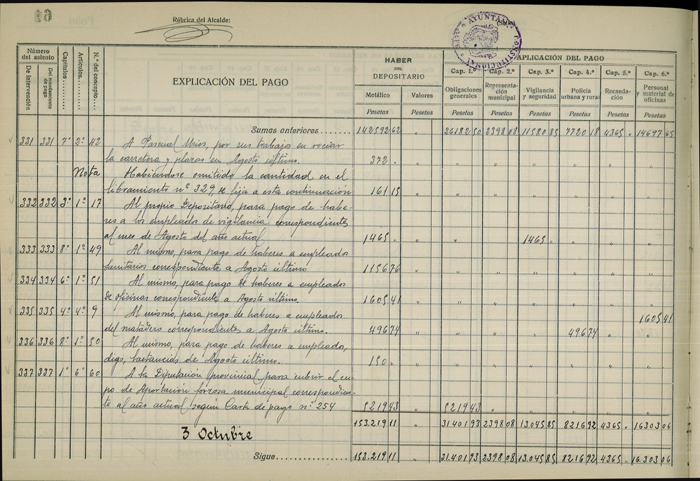 64
Rúbrica del Alcalde:
AYUNTAMIENTO CONSTITUCIONAL
Número del asiento
De Intervención
Del mandamiento de pago
Capítulos
Artículos
N.º del concepto
EXPLICACIÓN DEL PAGO
HABER
DEL
DEPOSITARIO
Metálico
Valores
Pesetas
Pesetas
APLICACIÓN DEL PAGO
Cap. 1.º
Cap. 2.º
Cap. 3.º
Cap. 4.º
Cap. 5.º
Cap. 6.º
Obligaciones generales
Representación municipal
Vigilancia y seguridad
Policía urbana y rural
Recaudación
Personal y material de oficinas
Pesetas
Pesetas
Pesetas
Pesetas
Pesetas
Pesetas
Sumas anteriores
26182 50 2398 08 11580 85 7720 18 4365 14697 65
331 331 7º 2º 42 A Pascual, por sus trabajos en rociar
la carretera y plazas en Agosto último. 372
Nota Habiéndose omitido la cantidad en el
libramiento nº 329 se fija a esta continuación 161 15
332 332 3º 1º 17 Al propio Depositario, para pago de habe-
res a los empleados de vigilancia correspondiente
al mes de Agosto del año actual. 1465 1465
333 333 8º 1º 49 Al mismo, para pago de haberes a empleados
sanitarios correspondiente a Agosto último 1156 76
334 334 6º 1º 51 Al mismo, para pago de haberes a empleados
de oficinas correspondiente a Agosto último. 1605 41 1605 41
335 335 4º 4º 9 Al mismo, para pago de haberes a empleados
del matadero correspondiente a Agosto último. 496 74 496 74
336 336 8º 1º 50 Al mismo, para pago de haberes a empleados,
de Agosto último. 150
337 337 1º 6º 60 A la Diputación provincial para cubrir el cu-
po de Aportación forzosa municipal correspondien-
te al año actual según Carta de pago nº 254 5219 43 5219 43
3 Octubre
153.219 11 31.401 93 2398 08 13.045 85 8216 92 4365 16.303 06
Sigue
153.219 11 31.401 93 2398 08 13.045 85 8216 92 4365 16.303 06